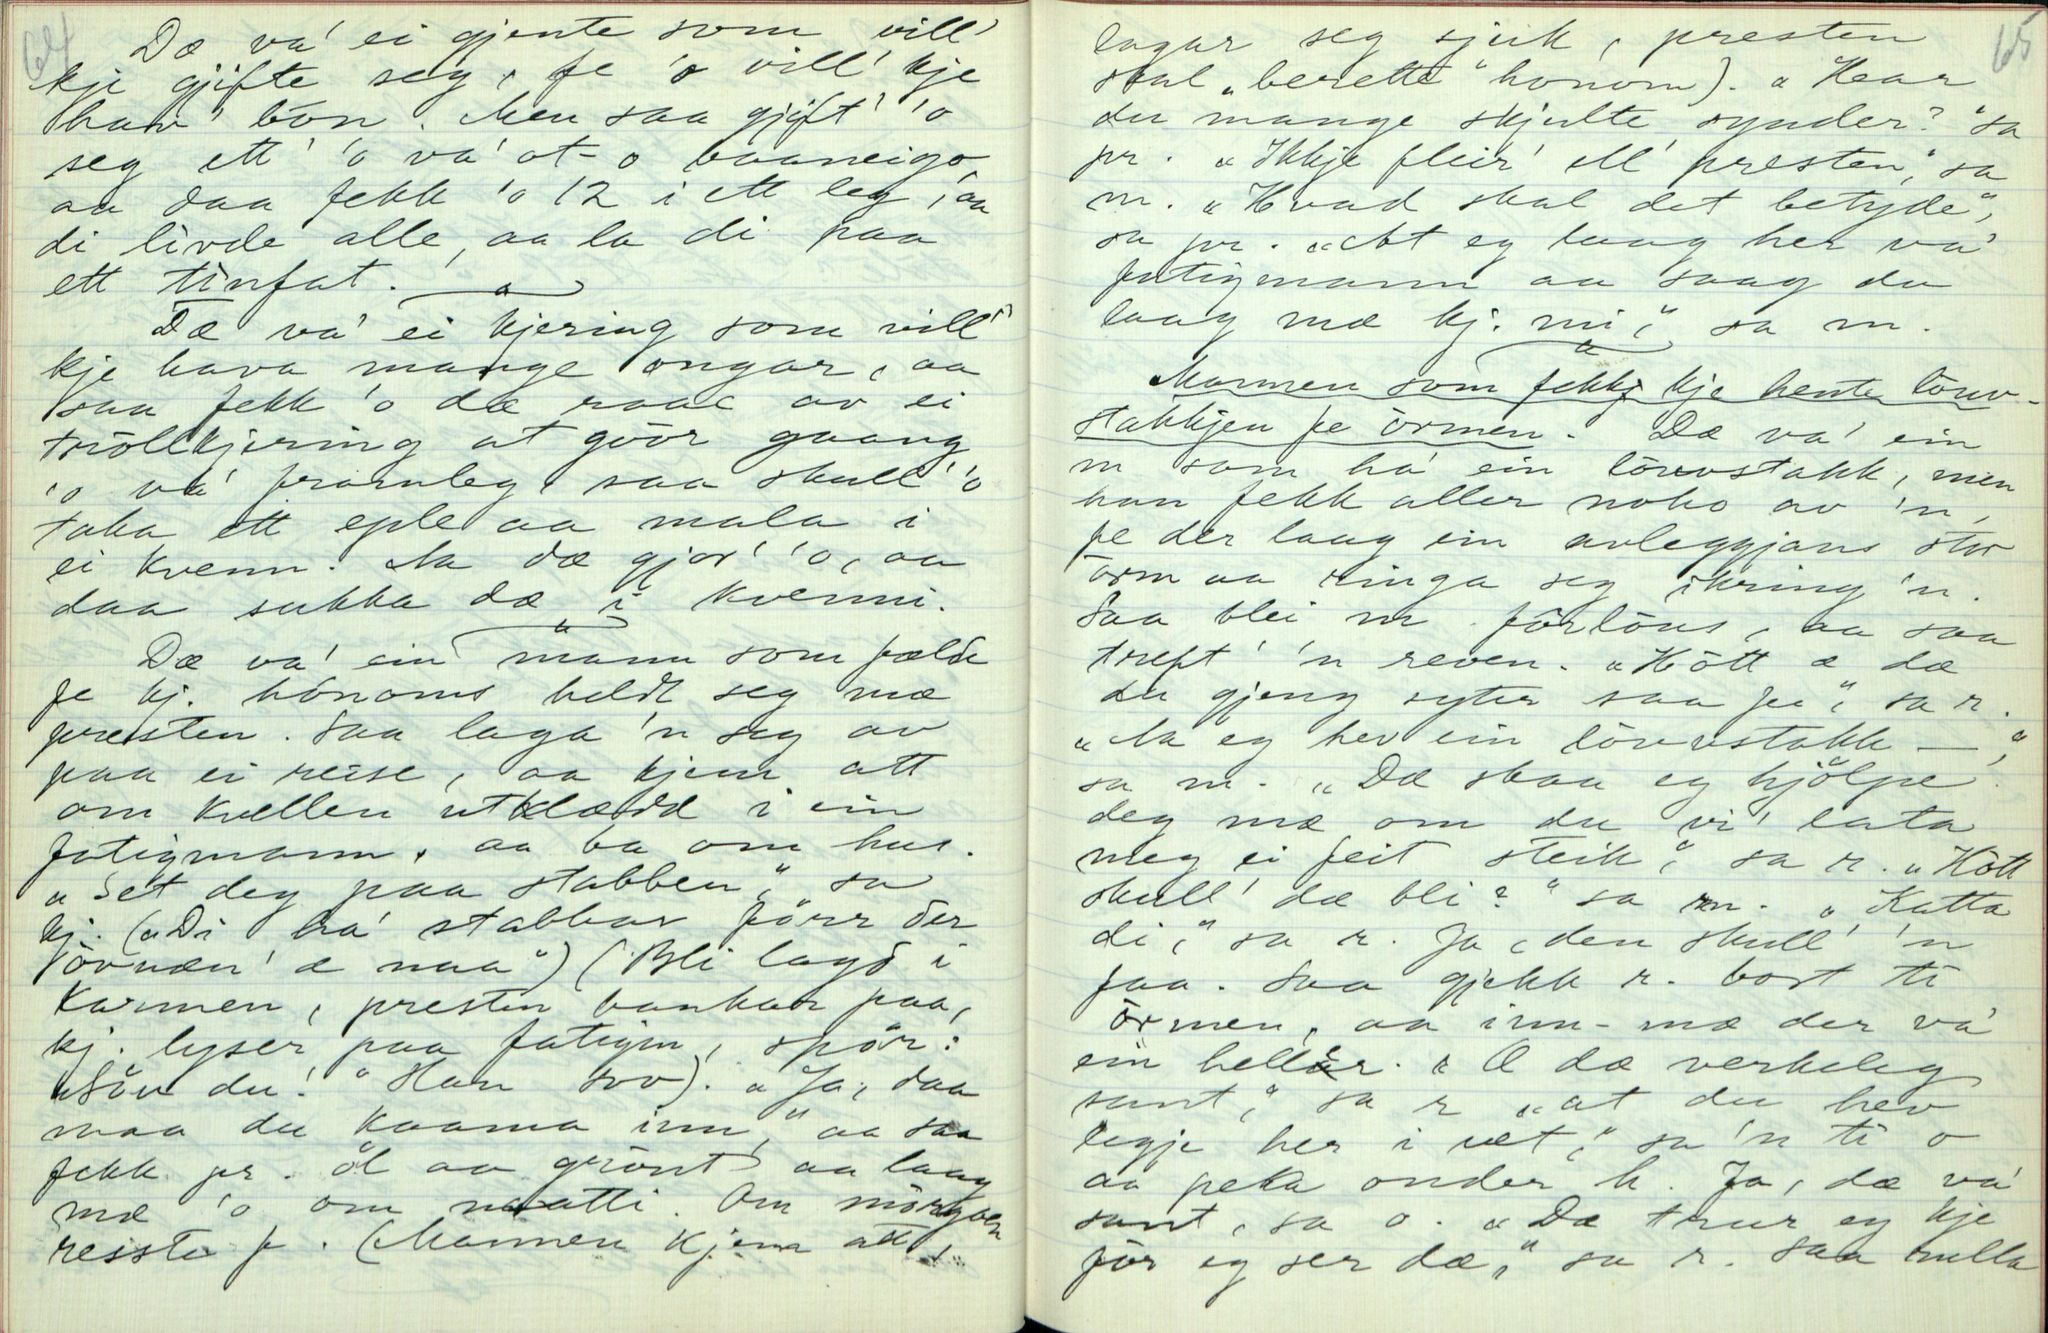 64
Dæ va' ei gjente som vill'
kje gjifte seg, fe 'o vill' kje
hav' bôn. Men saa gjift' 'o
seg ett' 'o va' ot-o baaneigo,
aa daa fekk 'o 12 i ett leg, aa
di livde alle, aa la di paa
ett tinfat.
Dæ va' ei kjering som vill'
kje hava mange ongar, aa
saa fekk 'o dæ raae av ei
trollkjering at gôor gaang
'o va' framleg, saa skull' 'o
taka ett eple aa mala i
ei kvenn. Aa dæ gjor' 'o, aa
daa sukka dæ i kvenni.
Dæ va' ein mann som fælde
fe kj. hônoms heldt seg mæ
presten. Saa laga 'n seg av
paa ei reise, aa kjem att
om kvellen utklædd i ein
fatigmann, aa ba om hus.
"Set deg paa stabben", sa
kj. ("Di ha' stabbar förr der
ôvnæn' æ naa") (Bli lagd i
karmen, presten bankar paa,
kj. lyser paa fatigm, spör:
"Söv du!" Han sov). "Ja, daa
maa du kaama inn," aa saa
fekk pr. öl aa grönt aa laag
mæ 'o om naatti. Om môrgaen
resste p. (Mannen kjem att,
65
lagar seg sjuk, presten
skal "berette" honom). "Har
du mange skjulte synder?" sa
pr. "Ikkje fleir' ell' presten," sa
m. "Hvad skal det betyde",
sa pr. "At eg laag her va'
fatigmann aa saag du
laag mæ kj. mi," sa m.
Mannen som fekk kje hente lôuv-
stakkjen fe ôrmen. Dæ va' ein
m som ha' ein lôuvstakk, men
han fekk aller noko av 'n,
fe der laag ein avleggjans stor
ôrm aa ringa seg ikring 'n.
Saa blei m fôrlôus, aa saa
treft' 'n reven. "Hôtt æ dæ
du gjeng syter saa fe", sa r.
"Aa eg hev ein lôuvstakk —",
sa m. "Dæ skaa eg hjölpe
deg mæ om du vi' lata
meg ei feit steik," sa r. "Hôtt
skull' dæ bli?" sa m. "Katta
di," sa r. Ja, den skull' 'n
faa. Saa gjekk r. bort ti
ôrmen, aa inn-mæ der va'
ein hellar. "Æ dæ verkeleg
sant," sa r "at du hev
legje her i væt," sa 'n ti o
aa peka onder h. Ja, dæ va'
sant, sa o. "Dæ trur eg kje
för eg ser dæ," sa r. Saa rulla